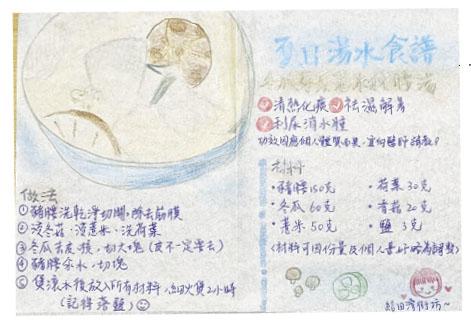 夏日湯水食譜
清熱化痰 祛濕解暑
利尿消水腫
功效因應個人體質而異，宜向醫師請教！
材料
・豬腰150克 ・荷葉30克
・冬瓜60克 ・香菇20克
・薏米50克 ・鹽3克
(材料可因份量及個人喜好略為調整)
給田灣街坊~
做法
①豬腰洗乾淨切開，除去筋膜
②浸冬菇、浸薏米、洗荷葉
③冬瓜去皮、核，切大塊(皮不一定要去)
④豬腰汆水，切塊
⑤煲滾水後放入所有材料，細火煲2小時
(記得落鹽)